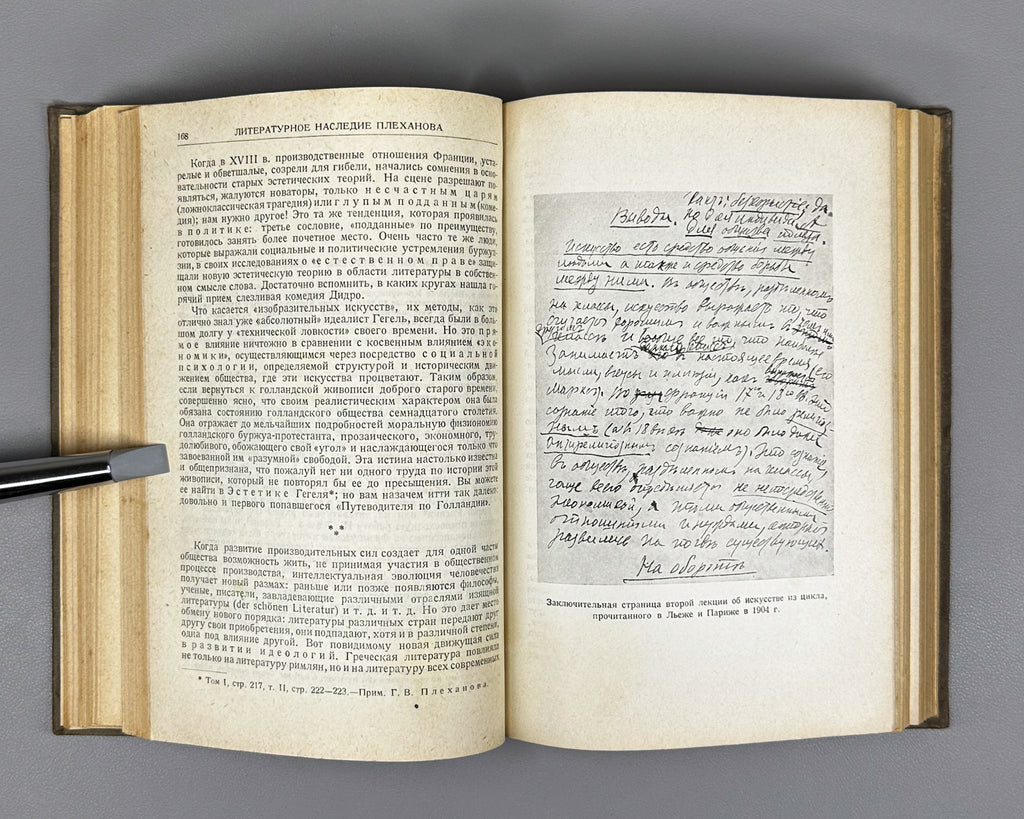 168
ЛИТЕРАТУРНОЕ НАСЛЕДИЕ ПЛЕХАНОВА
Когда в XVIII в. производственные отношения Франции, уста-
релые и обветшалые, созрели для гибели, начались сомнения в осно-
вательности старых эстетических теорий. На сцене разрешают по-
являться, жалуются новаторы, только несчастным царям
(ложноклассильная трагедия) или глупым подданным (коме-
дия); нам нужно другое! Это та же тенденция, которая проявилась
в политике: третье сословие, «подданные» по преимуществу,
готовилось занять более почетное место. Очень часто те же люди,
которые выражали социальные и политические устремления буржуа-
зии, в своих исследованиях о «естественном праве» защи-
щали новую эстетическую теорию в области литературы в собствен-
ном смысле слова. Достаточно вспомнить, в каких кругах нашла го-
рячий прием слезливая комедия Дидро.
Что касается «изобразительных искусств», их методы, как это
отлично знал уже «абсолютный» идеалист Гегель, всегда были в боль-
шом долгу у «технической ловкости» своего времени. Но это пря-
мое влияние ничтожно в сравнении с косвенным влиянием «эко-
номики», осуществляющимся через посредство социальной
психологии, определяемой структурой и историческим дви-
жением общества, где эти искусства процветают. Таким образом,
если вернуться к голландской живописи доброго старого времени,
совершенно ясно, что своим реалистическим характером она была
обязана состоянию голландского общества семнадцатого столетия.
Она отражает до мельчайших подробностей моральную физиономию
голландского буржуа-протестанта, прозаического, экономного, тру-
долюбивого, обожающего свой «угол» и наслаждающегося только что
завоеванной им «разумной» свободой. Эта истина настолько известна
и общепризнана, что пожалуй нет ни одного труда по истории этой
живописи, который не повторял бы ее до пресыщения. Вы можете
ее найти в Эстетике Гегеля*; но вам назачем итти так далеко:
довольно и первого попавшегося «Путеводителя по Голландии».
* *
Когда развитие производительных сил создает для одной части
общества возможность жить, не принимая участия в общественном
процессе производства, интеллектуальная эволюция человечества
получает новый размах: раньше или позже появляются философы,
ученые, писатели, завладевающие различными отраслями изящной
литературы (der schönen Literatur) и т. д. и т. д. Но это дает место
обмену нового порядка: литературы различных стран передают друг
другу свои приобретения, они подпадают, хотя и в различной степени,
одна под влияние другой. Вот повидимому новая движущая сила
в развитии идеологий. Греческая литература повлияла
не только на литературу римлян, но и на литературу всех современных
* Том I, стр. 217, т. II, стр. 222—223.—Прим. Г. В. Плеханова.
Выводы.
для общества польза.
Искусство есть средство общения между
людьми а также и средство борьбы
между ними. Въ обществѣ, раздѣленномъ
на классы, искусство выражаетъ то, что
считается хорошимъ и важнымъ в
что наиболѣе
въ настоящее время (его
Франціи 17 и 18
что важно не было
18 вѣкѣ оно было
сознаніемъ). Это сознаніе
въ обществѣ, раздѣленномъ на классы,
чаще всего опредѣляется не непосредственно
экономикой, а тѣми общественными
отношеніями и нуждами, которые
развились на почвѣ существующихъ.
На оборотѣ
Заключительная страница второй лекции об искусстве из цикла,
прочитанного в Льеже и Париже в 1904 г.